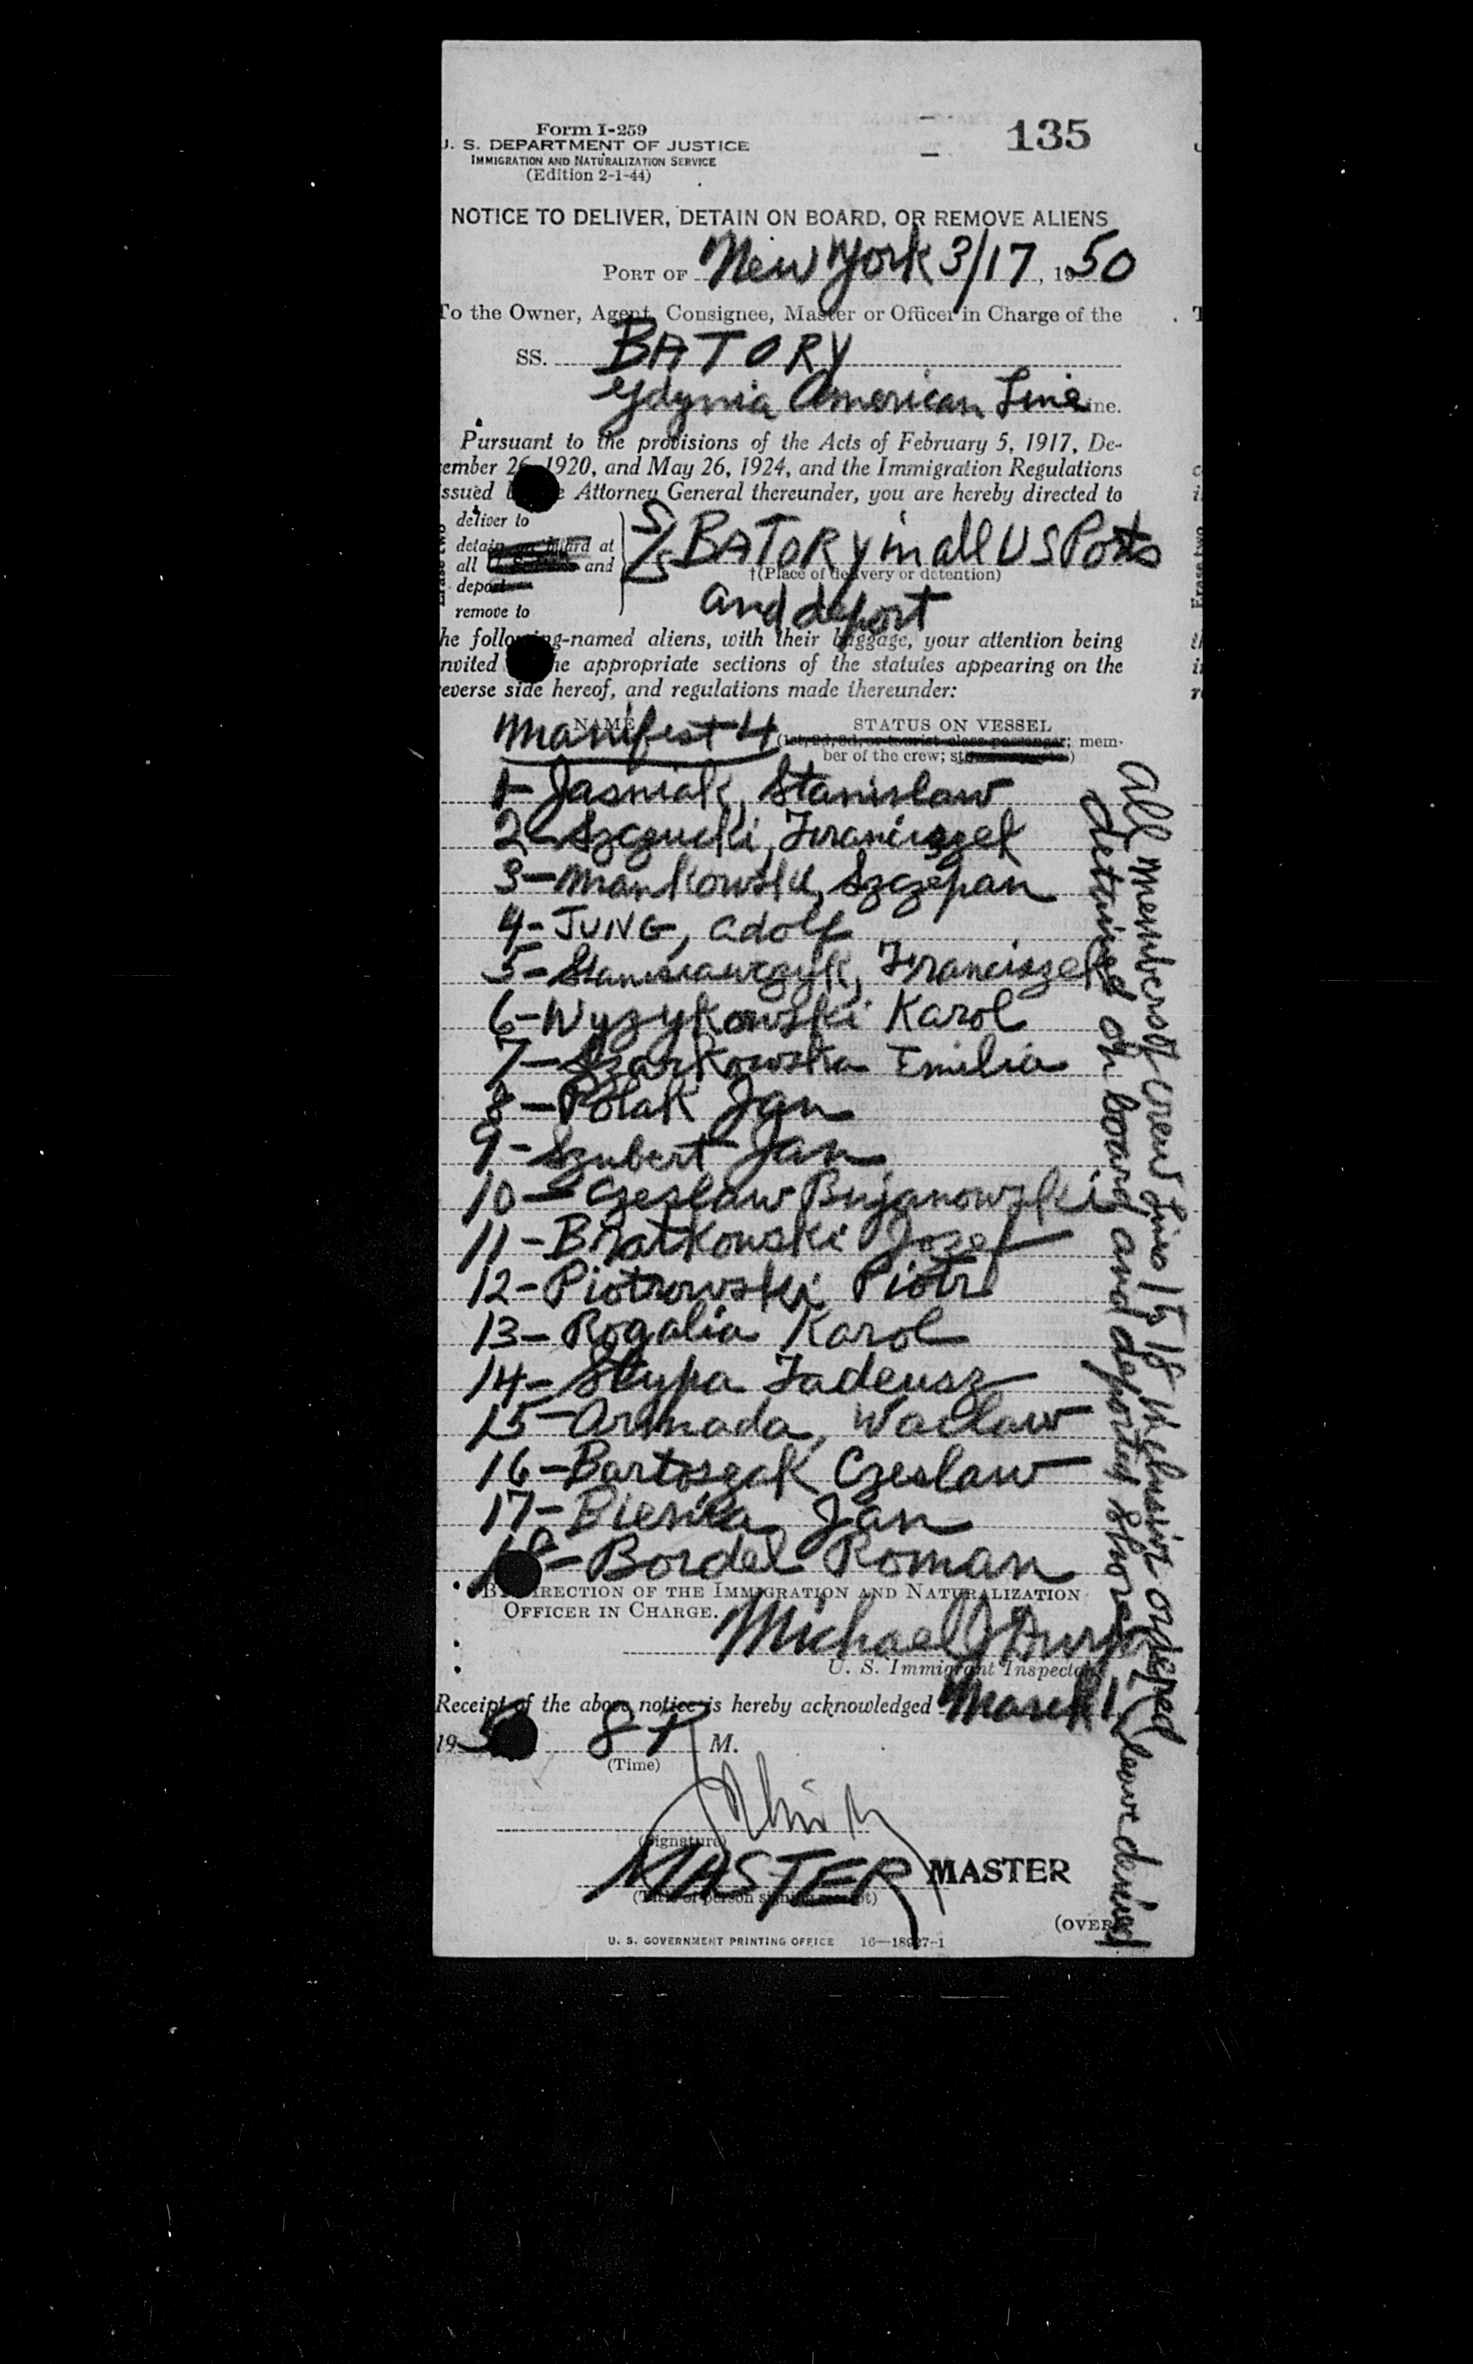 135
Form I-259
U. S. DEPARTMENT OF JUSTICE
IMMIGRATION AND NATURALIZATION SERVICE
(Edition 2-1-44)
NOTICE TO DELIVER, DETAIN ON BOARD, OR REMOVE ALIENS
PORT OF New York 3/17, 1950
To the Owner, Agent, Consignee, Master or Officer in Charge of the
SS. BATORY
Gdynia American Line ine.
Pursuant to the provisions of the Acts of February 5, 1917, De-
ember 26, 1920, and May 26, 1924, and the Immigration Regulations
ssued Attorney General thereunder, you are hereby directed to
deliver to
detain on board at
all and
deport
remove to
S/S BATORY in all US Ports
†(Place of delivery or detention)
and deport
he following-named aliens, with their baggage, your attention being
nvited he appropriate sections of the statutes appearing on the
everse side hereof, and regulations made thereunder:
NAME STATUS ON VESSEL
Manifest 4 (1st, 2d, 3d, or tourist class passenger; mem-
ber of the crew;
1- Jasniak, Stanislaw
2- Szczucki, Franciszek
3- Mankowski, Szczepan
4- JUNG, Adolf
5- Stanislawczyk, Franciszek
6- Wyzykowski Karol
7- Szarkowska Emilia
8- Polak Jan
9- Szubert Jan
10- Czeslaw Bujanowski
11- Bratkowski Jozef
12- Piotrowski Piotr
13- Rogalia Karol
14- Stypa Tadeusz
15- Armada, Waclaw
16- Bartoszak Czeslaw
17- Bienka Jan
18- Bordel Roman
All members of crew lines 1 to 18 inclusive ordered
detained on board and deported shore leave denied
BY DIRECTION OF THE IMMIGRATION AND NATURALIZATION
OFFICER IN CHARGE.
Michael J
U. S. Immigrant Inspector
Receipt of the above notice is hereby acknowledged March 17
195 8 P M.
(Time)
(Signature)
MASTER MASTER
(Title of person signing receipt)
(OVER)
U. S. GOVERNMENT PRINTING OFFICE 16—18927-1